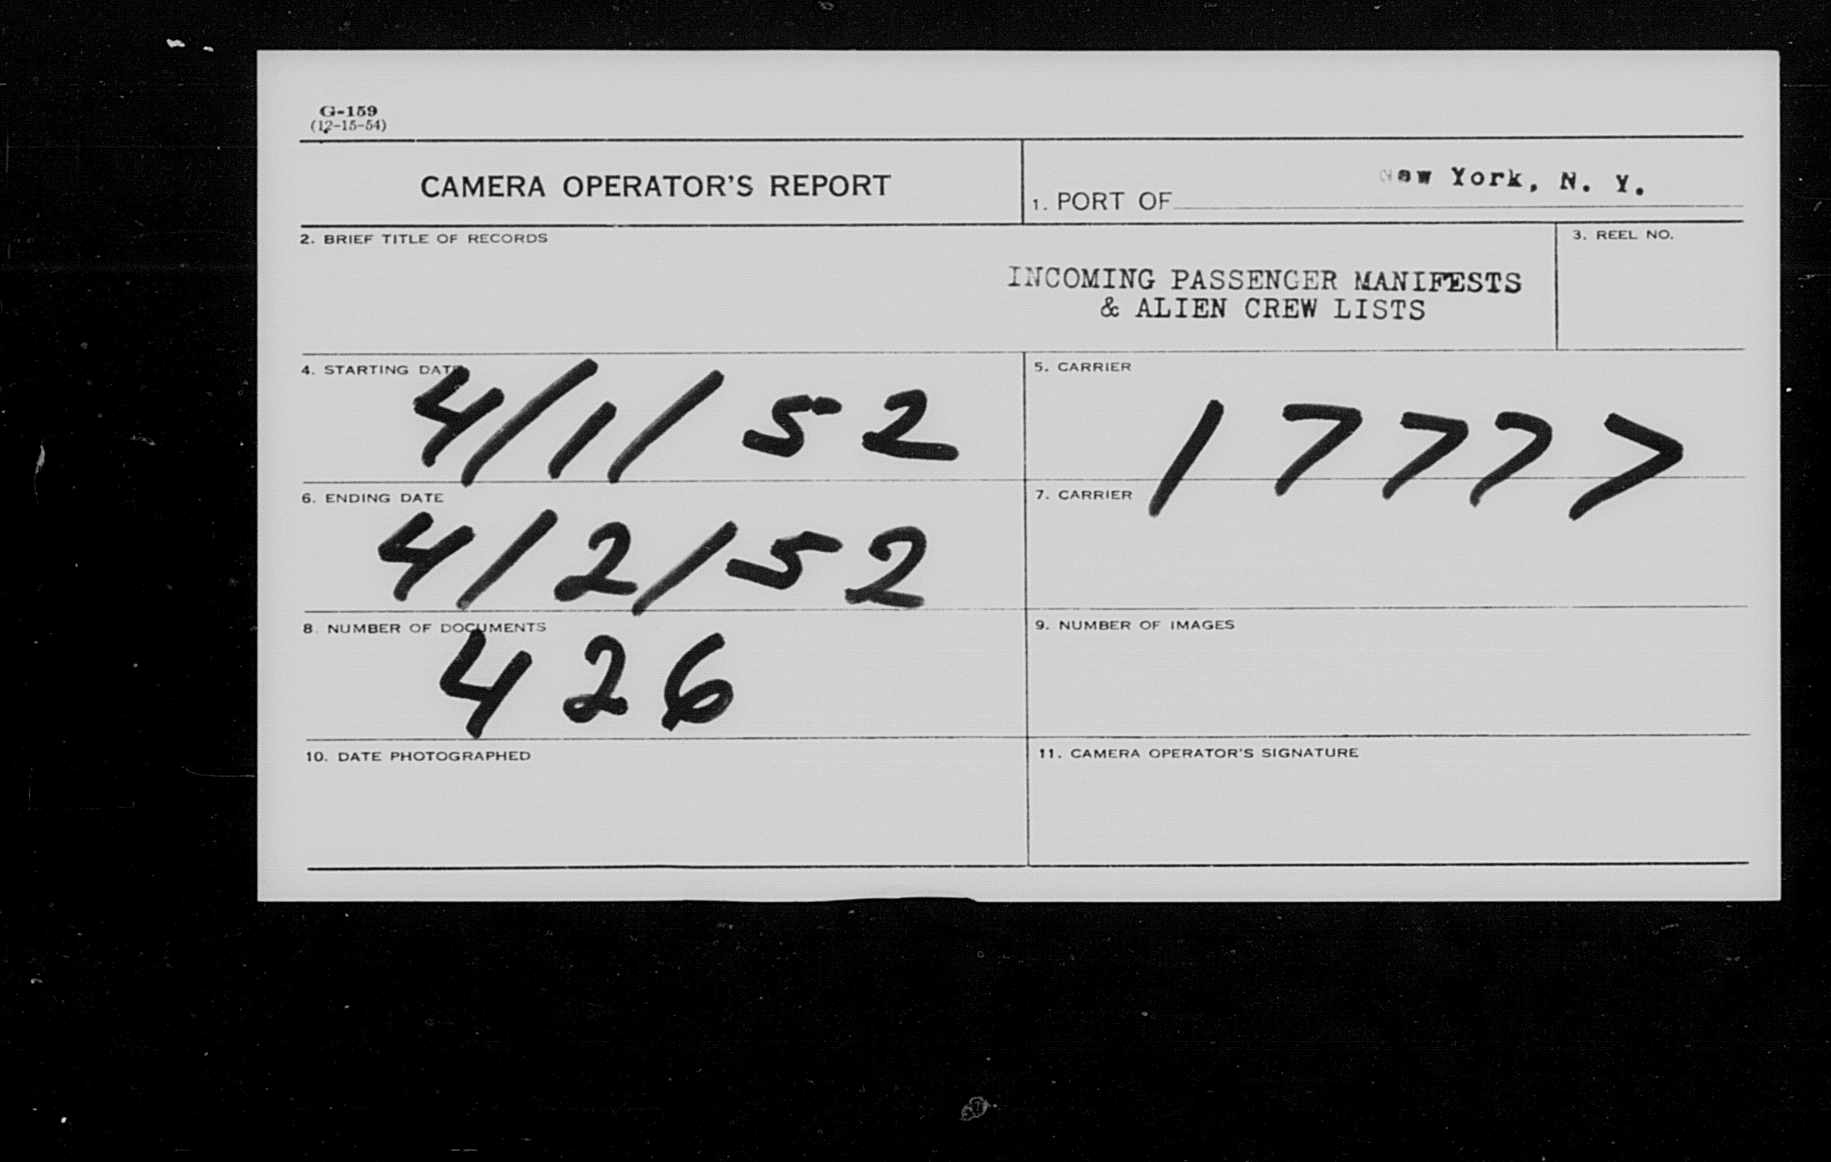 G-159
(12-15-54)
CAMERA OPERATOR'S REPORT
1. PORT OF New York, N. Y.
2. BRIEF TITLE OF RECORDS
3. REEL NO.
INCOMING PASSENGER MANIFESTS
& ALIEN CREW LISTS
4. STARTING DATE
4/1/52
5. CARRIER
17777
6. ENDING DATE
4/2/52
7. CARRIER
8. NUMBER OF DOCUMENTS
426
9. NUMBER OF IMAGES
10. DATE PHOTOGRAPHED
11. CAMERA OPERATOR'S SIGNATURE